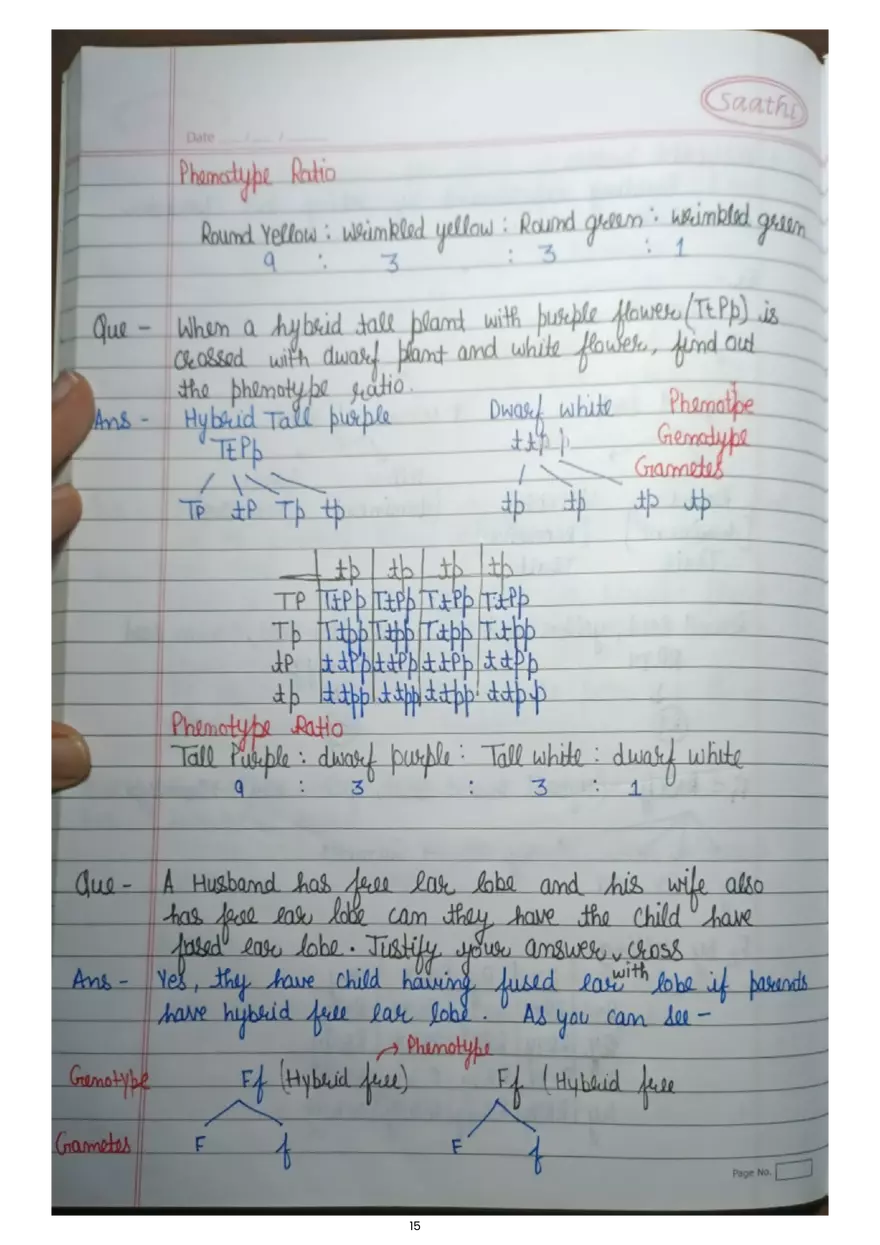 Saathi
Date ___/___/_____
Phenotype Ratio
Round Yellow : wrinkled yellow : Round green : wrinkled green
9 : 3 : 3 : 1
Que - When a hybrid tall plant with purple flower (TtPp) is
crossed with dwarf plant and white flower, find out
the phenotype ratio.
Ans - Hybrid Tall purple Dwarf white Phenotpe
TtPp ttpp Genotype
Gametes
TP tP Tp tp tp tp tp tp
tp tp tp tp
TP TtPp TtPp TtPp TtPp
Tp Ttpp Ttpp Ttpp Ttpp
tP ttPp ttPp ttPp ttPp
tp ttpp ttpp ttpp ttpp
Phenotype Ratio
Tall Purple : dwarf purple : Tall white : dwarf white
9 : 3 : 3 : 1
Que - A Husband has free ear lobe and his wife also
has free ear lobe can they have the child have
fused ear lobe. Justify your answer with cross
Ans - Yes, they have child having fused ear lobe if parents
have hybrid free ear lobe. As you can see -
→ Phenotype
Genotype Ff (Hybrid free) Ff (Hybrid free
Gametes F f F f
Page No.
15